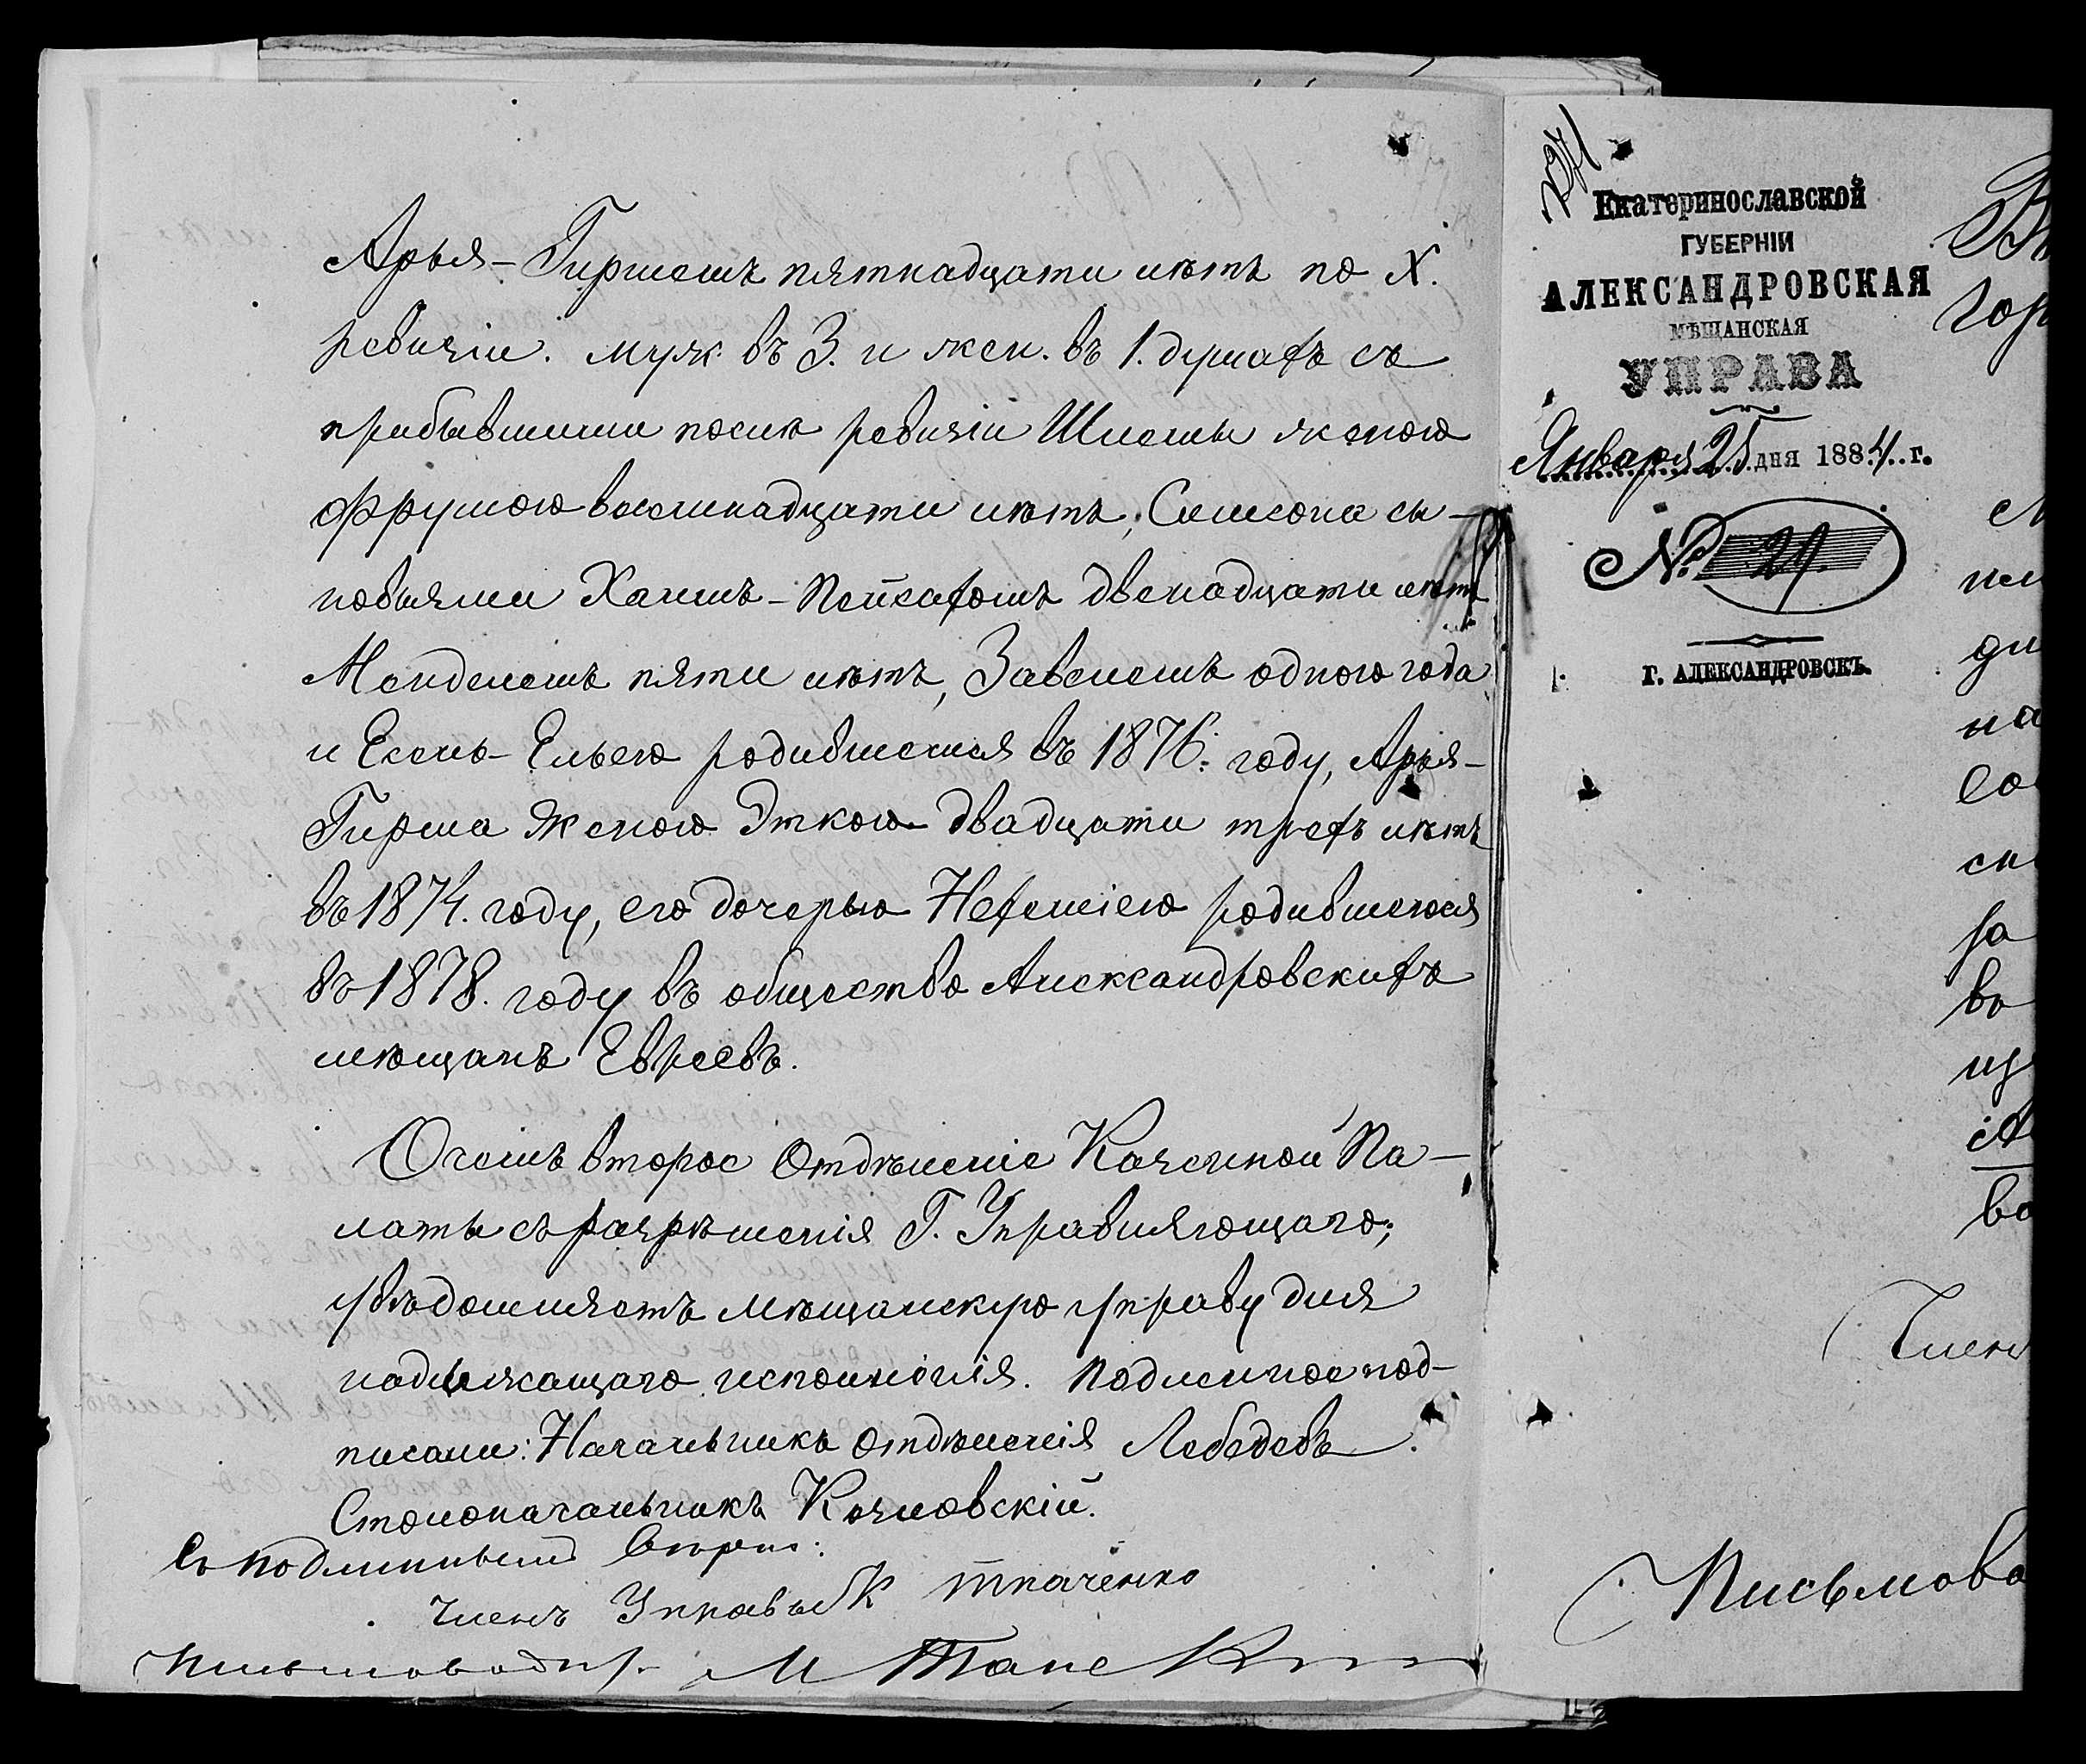 Арья-Гиршемъ пятнадцати лѣтъ по X.
ревизіи. муж. въ 3. и жен. въ 1. душахъ съ
прибывшими послѣ ревизіи Шлемы женою
Фрумою восемнадцати лѣтъ, Симсона сы-
новьями Хаимъ-Пейсахомъ двенадцати лѣтъ
Менделемъ пяти лѣтъ, Завелемъ одного года
и Ехель-Ельею родившемся въ 1876. году, Арья-
Гирша женою Эткою двадцати трехъ лѣтъ
въ 1874. году, его дочерью Нехеміею родившеюся
въ 1878. году въ общество Александровскихъ
мѣщанъ Евреевъ.
О чемъ второе Отдѣленіе Казенной Па-
латы съ разрѣшенія Г. Управляющаго,
увѣдомляетъ мѣщанскую управу для
надлежащаго исполненія. Подлинное под-
писали: Начальникъ Отдѣленія Лебедевъ.
Столоначальникъ Козловскій.
Съ подлиннымъ вѣрно:
Членъ Управы К Ткаченко
Письмоводит. М
Екатеринославской
ГУБЕРНІИ
АЛЕКСАНДРОВСКАЯ
МѢЩАНСКАЯ
УПРАВА
Января 25 дня 1884 г.
№ 21.
г. АЛЕКСАНДРОВСКЪ.
гор
пл
ди
на
со
сн
ра
во
щ
во
Член
Письмово